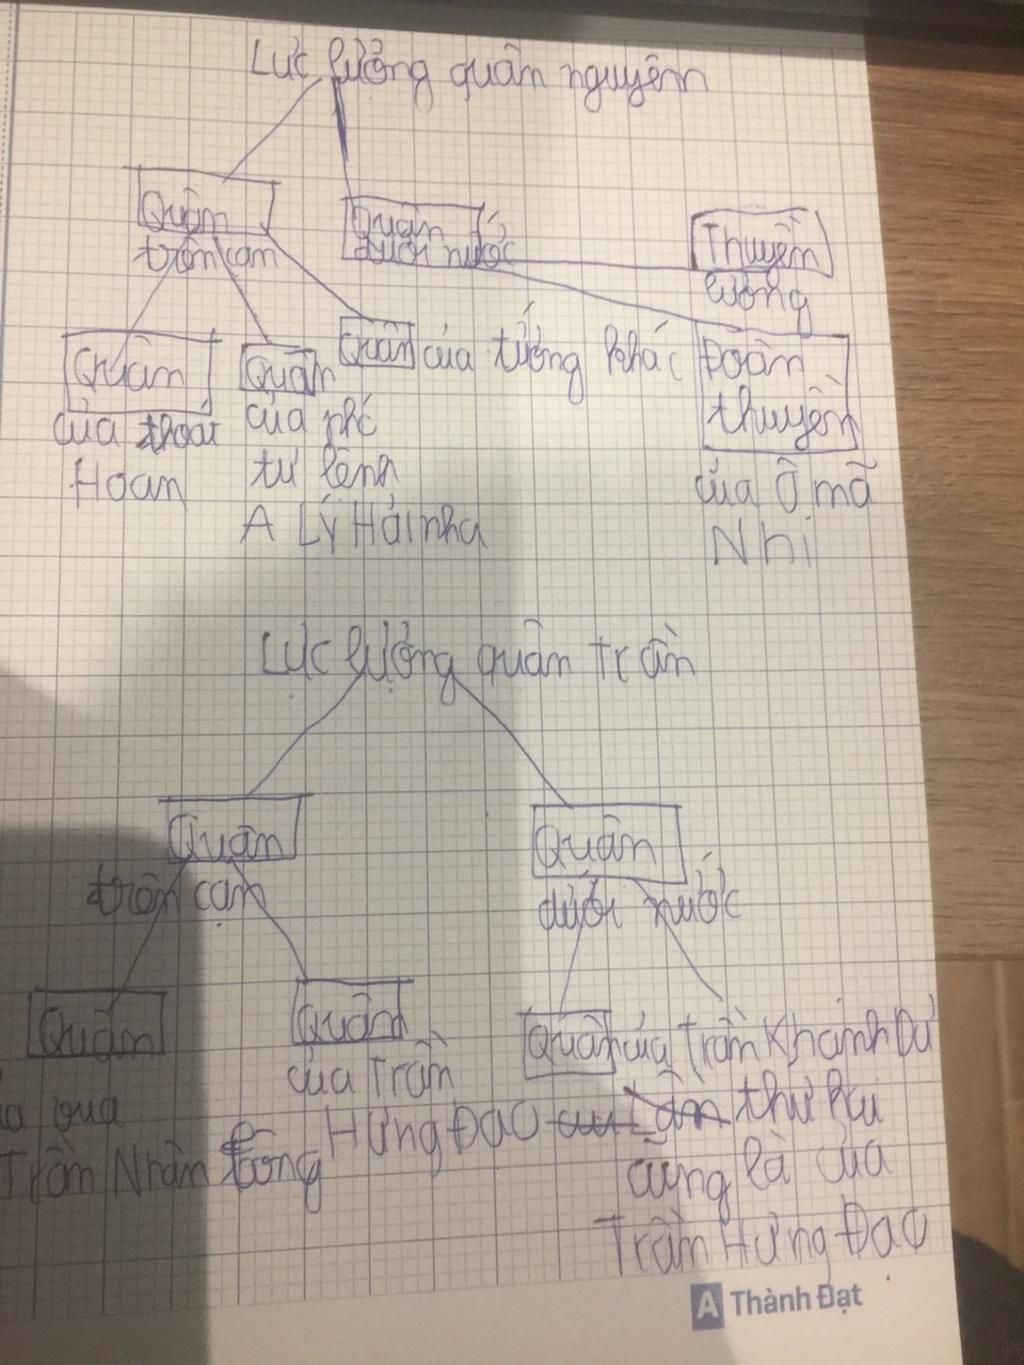 Lực lưởng quân nguyên
Quân
trên cạn
Quân
dưới nước
Thuyền
lương
Quân
của thoát
Hoan
Quân
của phó
tư lênh
A Lý Hải nha
Quân của tướng khác
Đoàn
thuyền
của Ô mã
Nhi
Lực lượng quân trần
Quân
trên cạn
Quân
dưới nước
Quân
a vua
Trần Nhân tông
Quân
của Trần
Hưng Đạo
Quân của Trần Khánh Dư
thư hai
cũng là của
Trần Hưng Đạo
A Thành Đạt